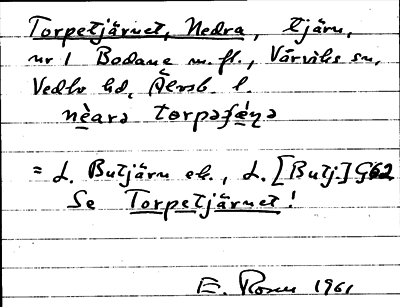 Torpetjärnet, Nedra, tjärn,
nr 1 Bodane m. fl., Värviks sn,
Vedbo hd, Älvsb. l.
nèarə torpə
= L. Butjärn ek., L. [Butj.] G62
Se Torpetjärnet!
E. 1961